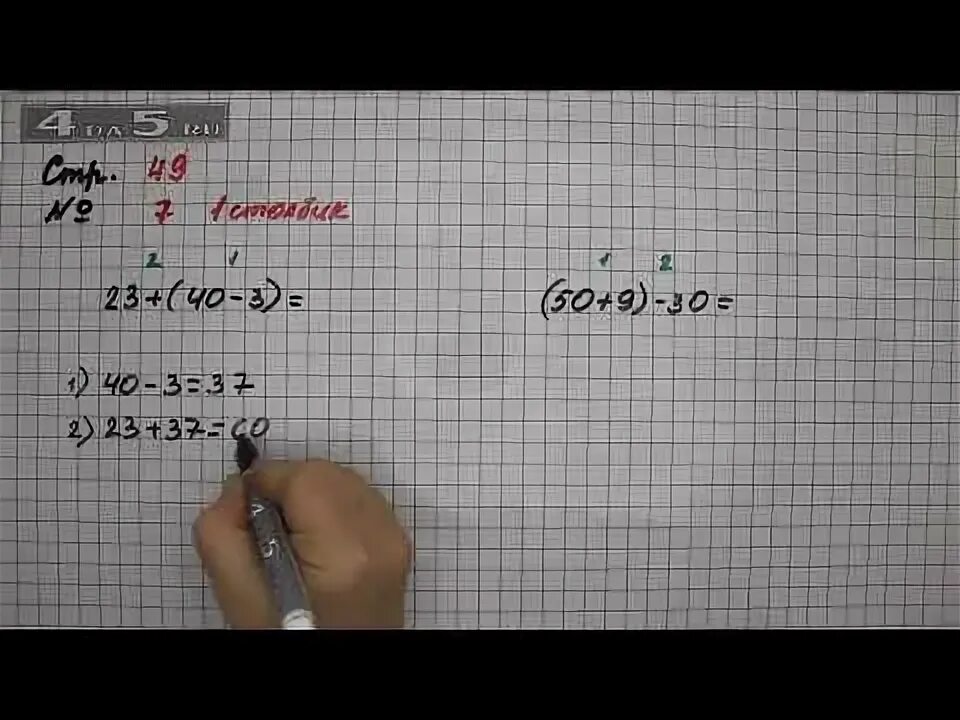 4 на 5
Стр. 49
№ 7 1 столбик
2 1
23+(40-3)=
1 2
(50+9)-30=
1) 40-3=37
2) 23+37=60